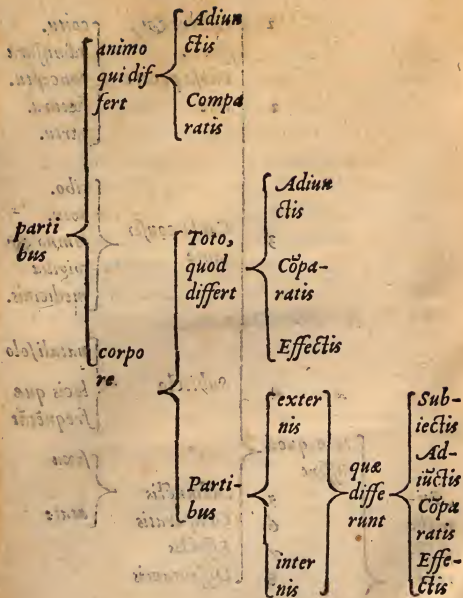 parti
bus
animo
qui dif
fert
Adiun
ctis
Compa
ratis
corpo
re.
Toto,
quod
differt
Adiun
ctis
Cõpa-
ratis
Effectis
Parti-
bus
exter
nis
inter
nis
quæ
diffe
runt
Sub-
iectis
Ad-
iũctis
Cõpa
ratis
Effe-
ctis